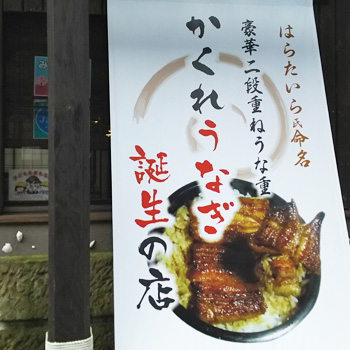 はらたいら氏命名
豪華二段重ねうな重
かくれうなぎ
誕生の店